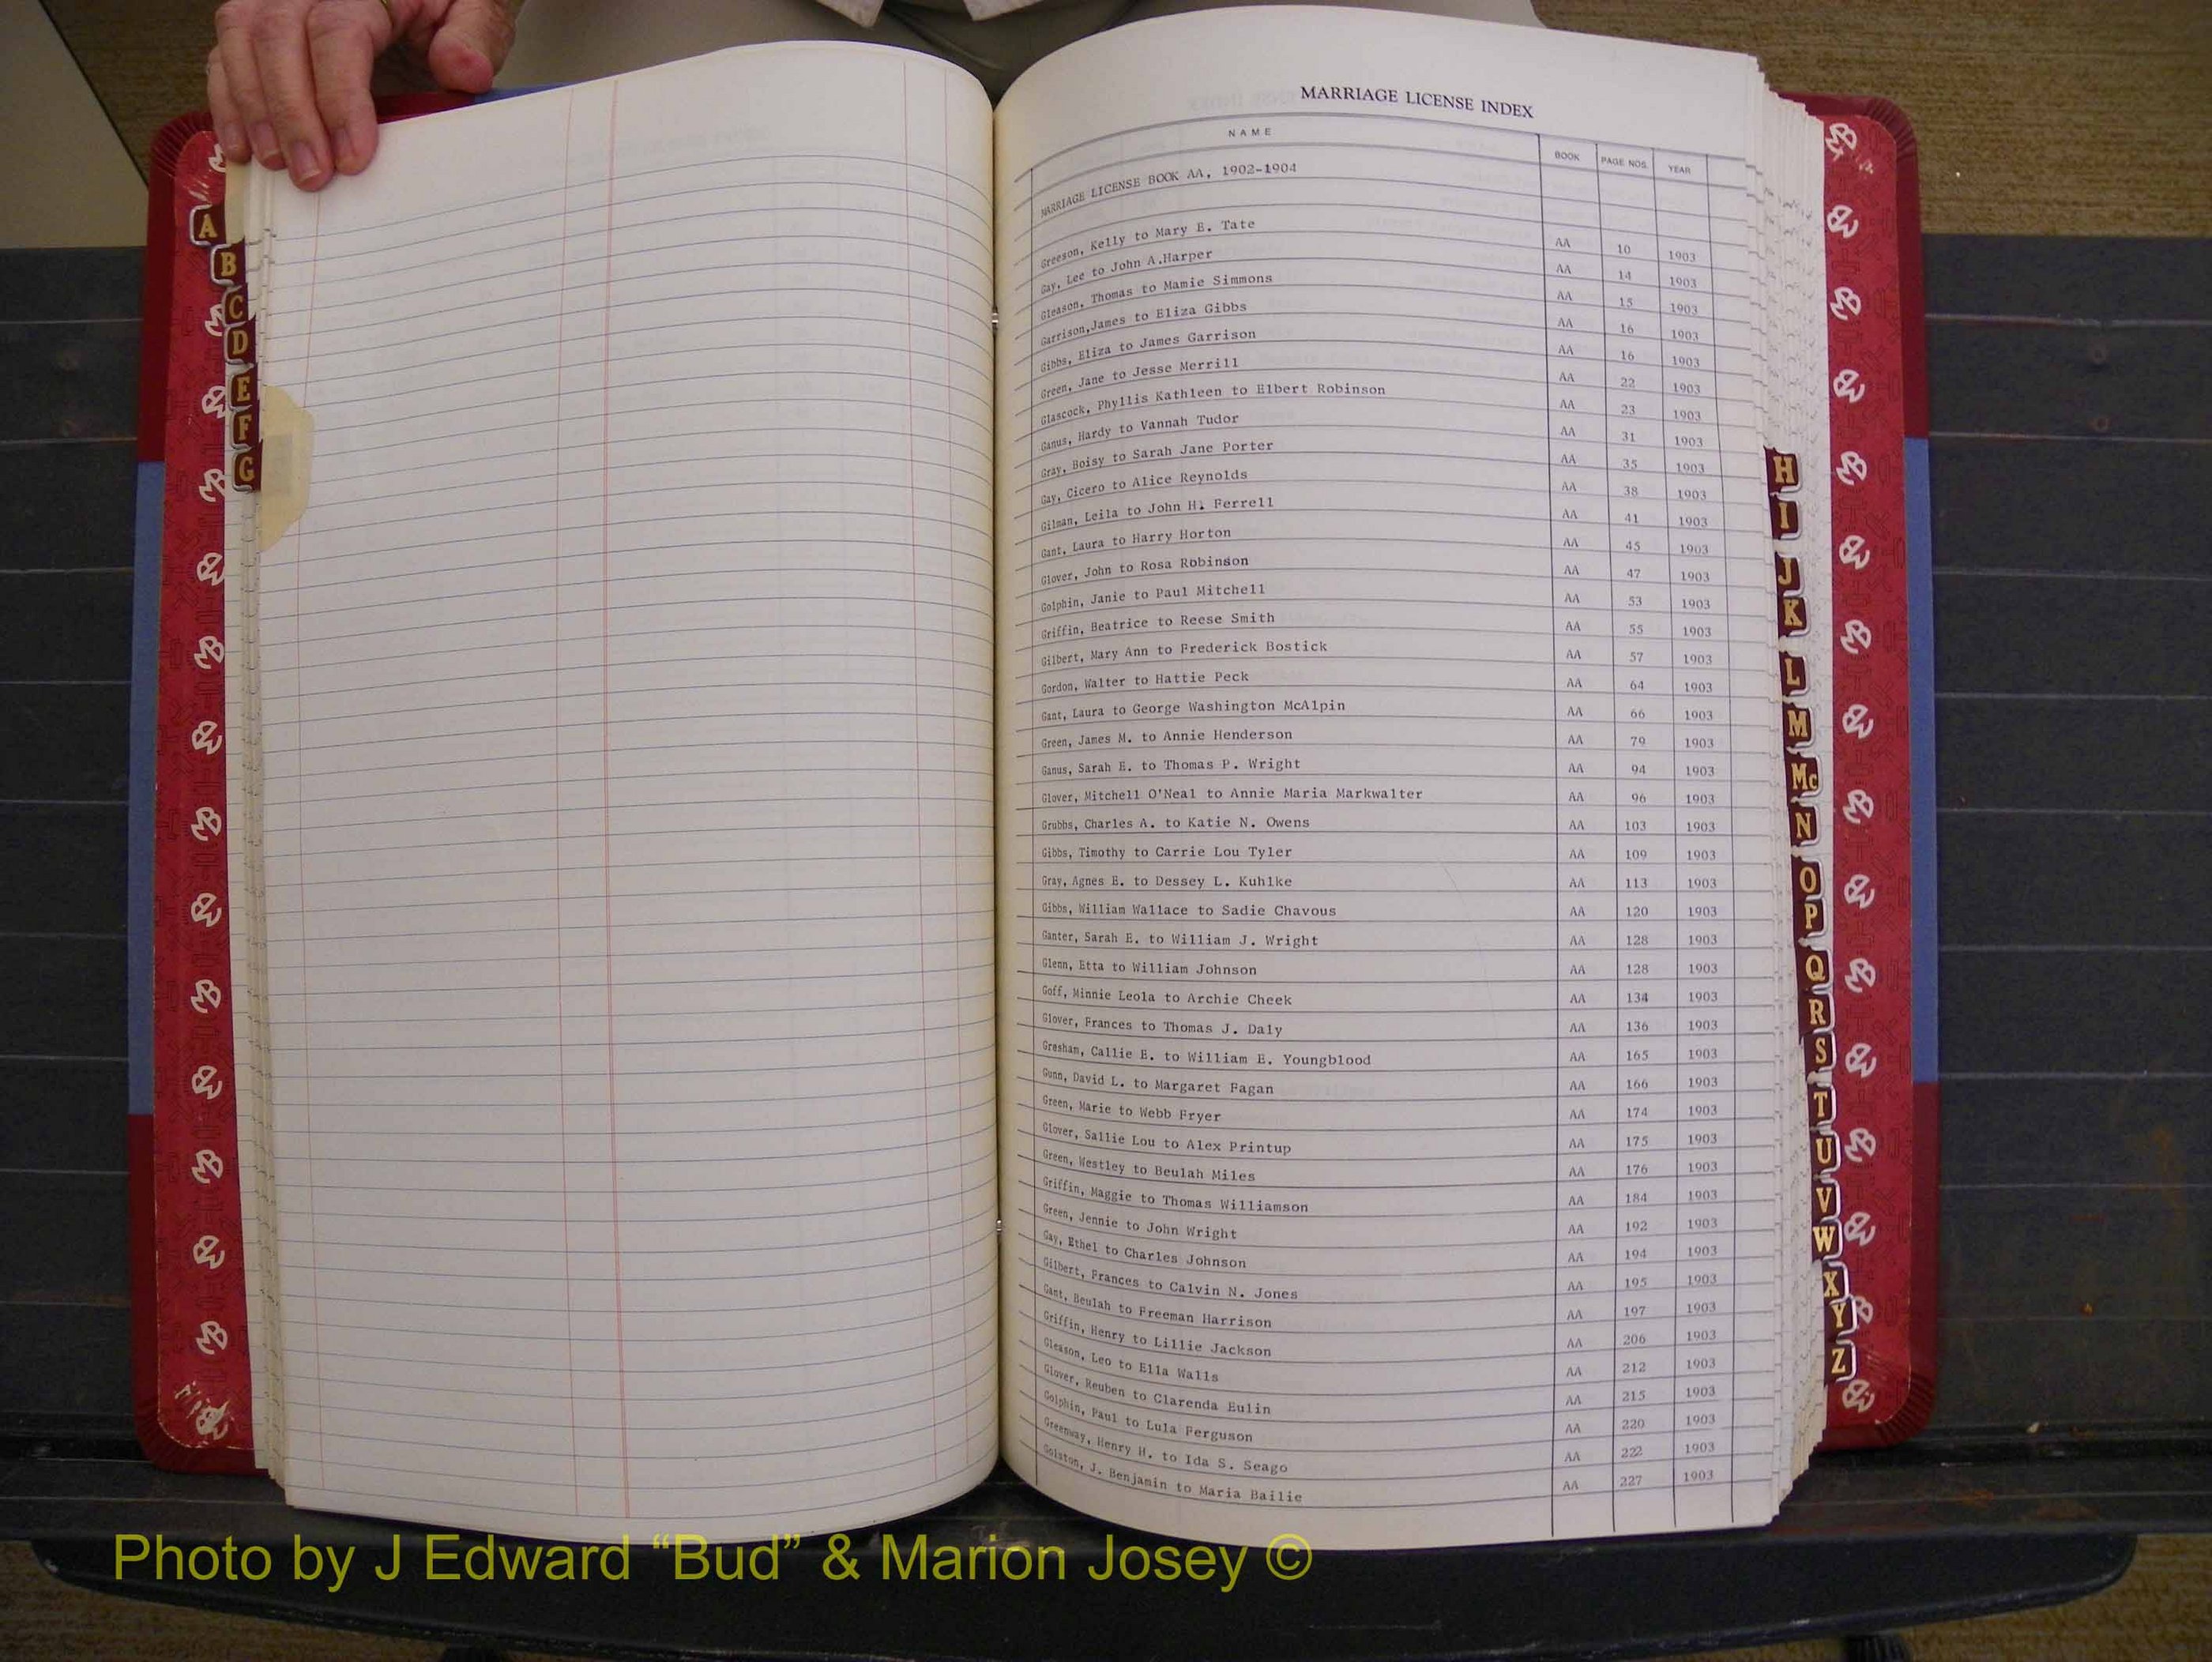 MARRIAGE LICENSE INDEX
NAME BOOK PAGE NOS. YEAR
MARRIAGE LICENSE BOOK AA, 1902-1904
Greeson, Kelly to Mary E. Tate AA 10 1903
Gay, Lee to John A.Harper AA 14 1903
Gleason, Thomas to Mamie Simmons AA 15 1903
Garrison,James to Eliza Gibbs AA 16 1903
Gibbs, Eliza to James Garrison AA 16 1903
Green, Jane to Jesse Merrill AA 22 1903
Glascock, Phyllis Kathleen to Elbert Robinson AA 23 1903
Ganus, Hardy to Vannah Tudor AA 31 1903
Gray, Boisy to Sarah Jane Porter AA 35 1903
Gay, Cicero to Alice Reynolds AA 38 1903
Gilman, Leila to John H. Ferrell AA 41 1903
Gant, Laura to Harry Horton AA 45 1903
Glover, John to Rosa Robinson AA 47 1903
Golphin, Janie to Paul Mitchell AA 53 1903
Griffin, Beatrice to Reese Smith AA 55 1903
Gilbert, Mary Ann to Frederick Bostick AA 57 1903
Gordon, Walter to Hattie Peck AA 64 1903
Gant, Laura to George Washington McAlpin AA 66 1903
Green, James M. to Annie Henderson AA 79 1903
Ganus, Sarah E. to Thomas P. Wright AA 94 1903
Glover, Mitchell O'Neal to Annie Maria Markwalter AA 96 1903
Grubbs, Charles A. to Katie N. Owens AA 103 1903
Gibbs, Timothy to Carrie Lou Tyler AA 109 1903
Gray, Agnes E. to Dessey L. Kuhlke AA 113 1903
Gibbs, William Wallace to Sadie Chavous AA 120 1903
Ganter, Sarah E. to William J. Wright AA 128 1903
Glenn, Etta to William Johnson AA 128 1903
Goff, Minnie Leola to Archie Cheek AA 134 1903
Glover, Frances to Thomas J. Daly AA 136 1903
Gresham, Callie E. to William E. Youngblood AA 165 1903
Gunn, David L. to Margaret Fagan AA 166 1903
Green, Marie to Webb Fryer AA 174 1903
Glover, Sallie Lou to Alex Printup AA 175 1903
Green, Westley to Beulah Miles AA 176 1903
Griffin, Maggie to Thomas Williamson AA 184 1903
Green, Jennie to John Wright AA 192 1903
Gay, Ethel to Charles Johnson AA 194 1903
Gilbert, Frances to Calvin N. Jones AA 195 1903
Gant, Beulah to Freeman Harrison AA 197 1903
Griffin, Henry to Lillie Jackson AA 206 1903
Gleason, Leo to Ella Walls AA 212 1903
Glover, Reuben to Clarenda Eulin AA 215 1903
Golphin, Paul to Lula Ferguson AA 220 1903
Greenway, Henry H. to Ida S. Seago AA 222 1903
Golston, J. Benjamin to Maria Bailie AA 227 1903
A
B
C
D
E
F
G
H
I
J
K
L
M
Mc
N
O
P
Q
R
S
T
U
V
W
X
Y
Z
Photo by J Edward “Bud” & Marion Josey ©